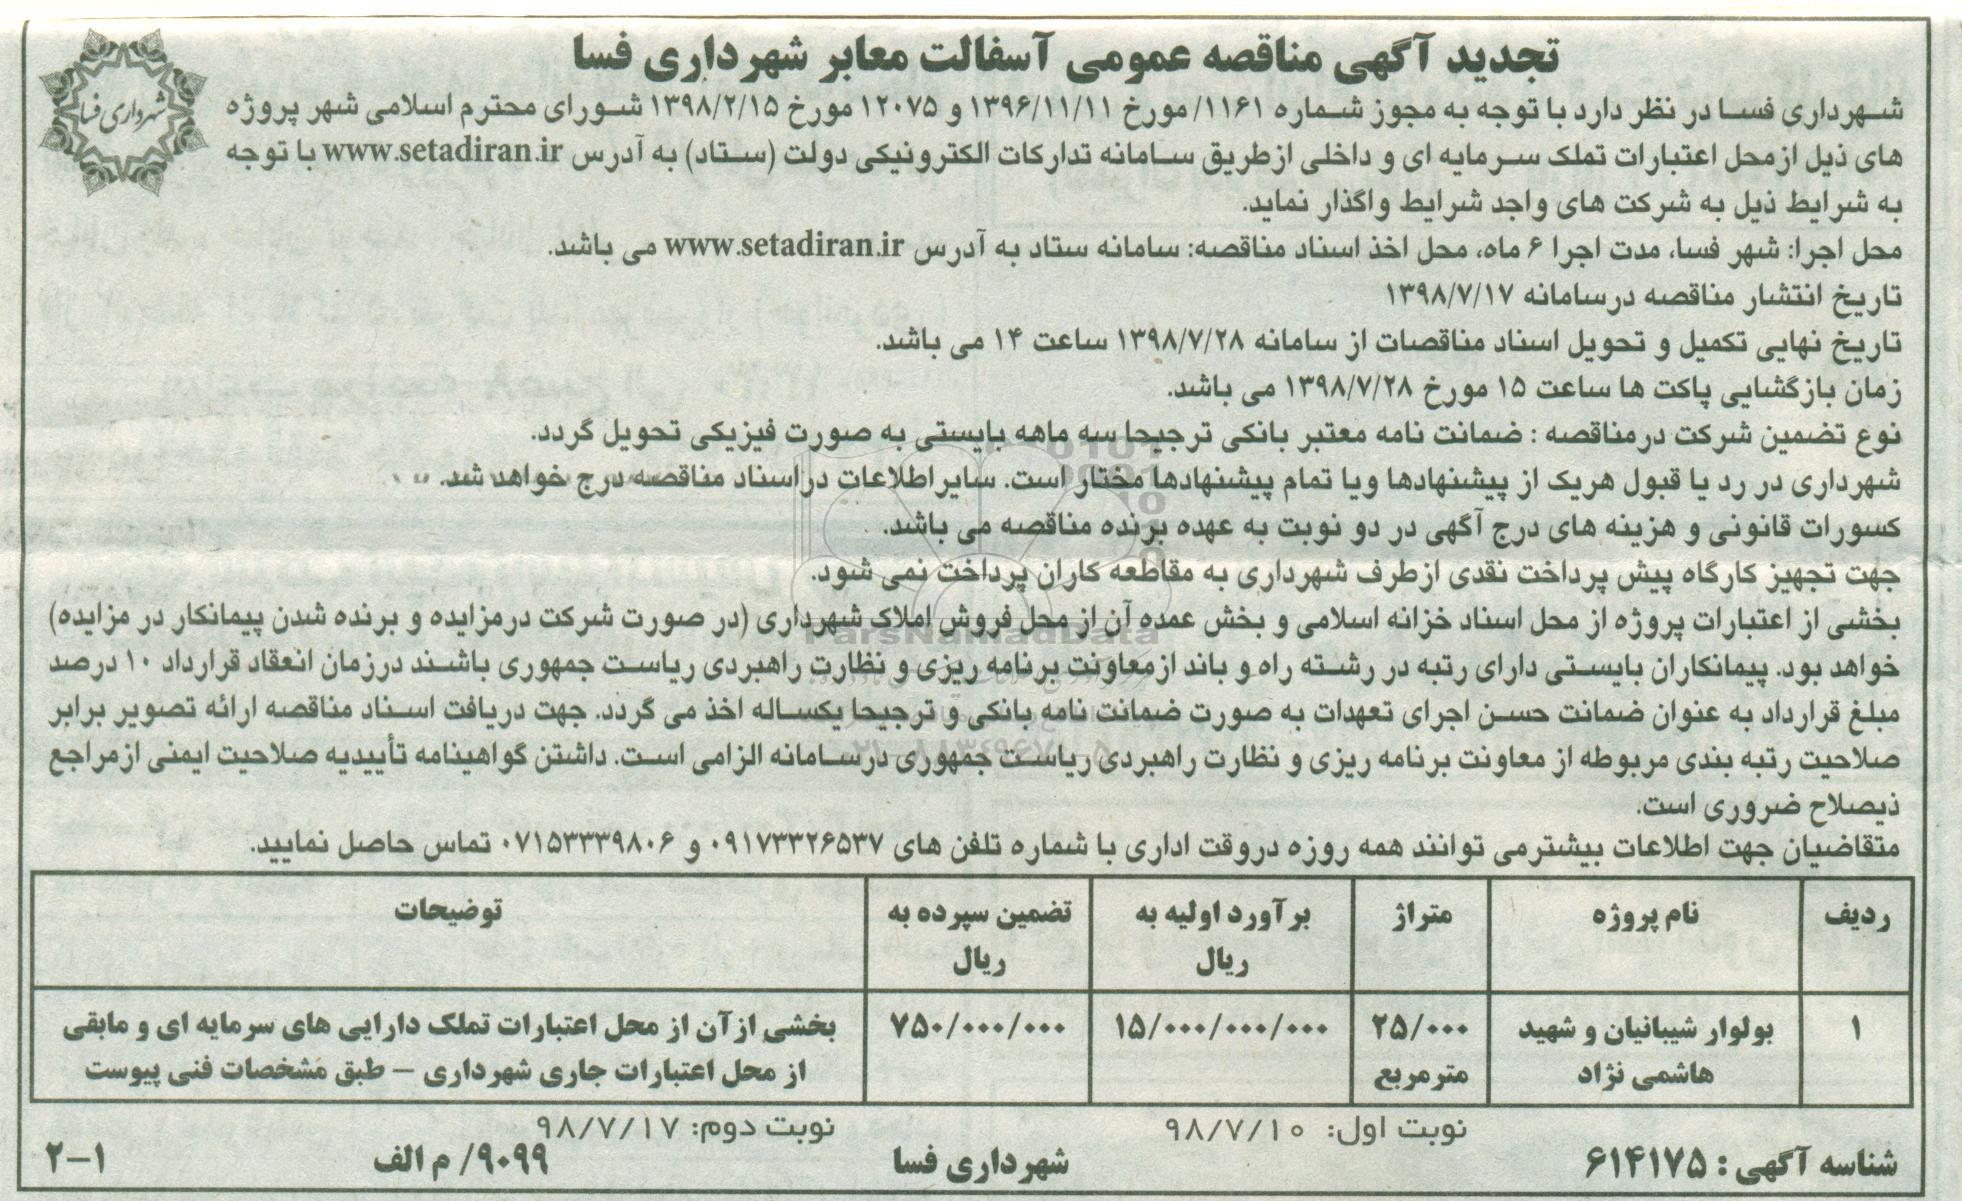 تجدید آگهی مناقصه عمومی آسفالت معابر شهرداری فسا
شهرداری فسا
شهرداری فسا در نظر دارد با توجه به مجوز شماره ۱۱۶۱/ مورخ ۱۳۹۶/۱۱/۱۱ و ۱۲۰۷۵ مورخ ۱۳۹۸/۲/۱۵ شورای محترم اسلامی شهر پروژه
های ذیل ازمحل اعتبارات تملک سرمایه ای و داخلی ازطریق سامانه تدارکات الکترونیکی دولت (ستاد) به آدرس www.setadiran.ir با توجه
به شرایط ذیل به شرکت های واجد شرایط واگذار نماید.
محل اجرا: شهر فسا، مدت اجرا ۶ ماه، محل اخذ اسناد مناقصه: سامانه ستاد به آدرس www.setadiran.ir می باشد.
تاریخ انتشار مناقصه درسامانه ۱۳۹۸/۷/۱۷
تاریخ نهایی تکمیل و تحویل اسناد مناقصات از سامانه ۱۳۹۸/۷/۲۸ ساعت ۱۴ می باشد.
زمان بازگشایی پاکت ها ساعت ۱۵ مورخ ۱۳۹۸/۷/۲۸ می باشد.
نوع تضمین شرکت درمناقصه : ضمانت نامه معتبر بانکی ترجیحا سه ماهه بایستی به صورت فیزیکی تحویل گردد.
شهرداری در رد یا قبول هریک از پیشنهادها ویا تمام پیشنهادها مختار است. سایراطلاعات دراسناد مناقصه درج خواهد شد.
کسورات قانونی و هزینه های درج آگهی در دو نوبت به عهده برنده مناقصه می باشد.
جهت تجهیز کارگاه پیش پرداخت نقدی ازطرف شهرداری به مقاطعه کاران پرداخت نمی شود.
بخشی از اعتبارات پروژه از محل اسناد خزانه اسلامی و بخش عمده آن از محل فروش املاک شهرداری (در صورت شرکت درمزایده و برنده شدن پیمانکار در مزایده)
خواهد بود. پیمانکاران بایستی دارای رتبه در رشته راه و باند ازمعاونت برنامه ریزی و نظارت راهبردی ریاست جمهوری باشند درزمان انعقاد قرارداد ۱۰ درصد
مبلغ قرارداد به عنوان ضمانت حسن اجرای تعهدات به صورت ضمانت نامه بانکی و ترجیحا یکساله اخذ می گردد. جهت دریافت اسناد مناقصه ارائه تصویر برابر
صلاحیت رتبه بندی مربوطه از معاونت برنامه ریزی و نظارت راهبردی ریاست جمهوری درسامانه الزامی است. داشتن گواهینامه تأییدیه صلاحیت ایمنی ازمراجع
ذیصلاح ضروری است.
متقاضیان جهت اطلاعات بیشترمی توانند همه روزه دروقت اداری با شماره تلفن های ۰۹۱۷۳۳۲۶۵۳۷ و ۰۷۱۵۳۳۳۹۸۰۶ تماس حاصل نمایید.
ردیف نام پروژه متراژ برآورد اولیه به ریال تضمین سپرده به ریال توضیحات
۱ بولوار شیبانیان و شهید هاشمی نژاد ۲۵/۰۰۰ مترمربع ۱۵/۰۰۰/۰۰۰/۰۰۰ ۷۵۰/۰۰۰/۰۰۰ بخشی ازآن از محل اعتبارات تملک دارایی های سرمایه ای و مابقی از محل اعتبارات جاری شهرداری – طبق مشخصات فنی پیوست
نوبت اول: ۹۸/۷/۱۰ نوبت دوم: ۹۸/۷/۱۷
شناسه آگهی : ۶۱۴۱۷۵ شهرداری فسا ۹۰۹۹/ م الف ۲–۱
ParsNamadData